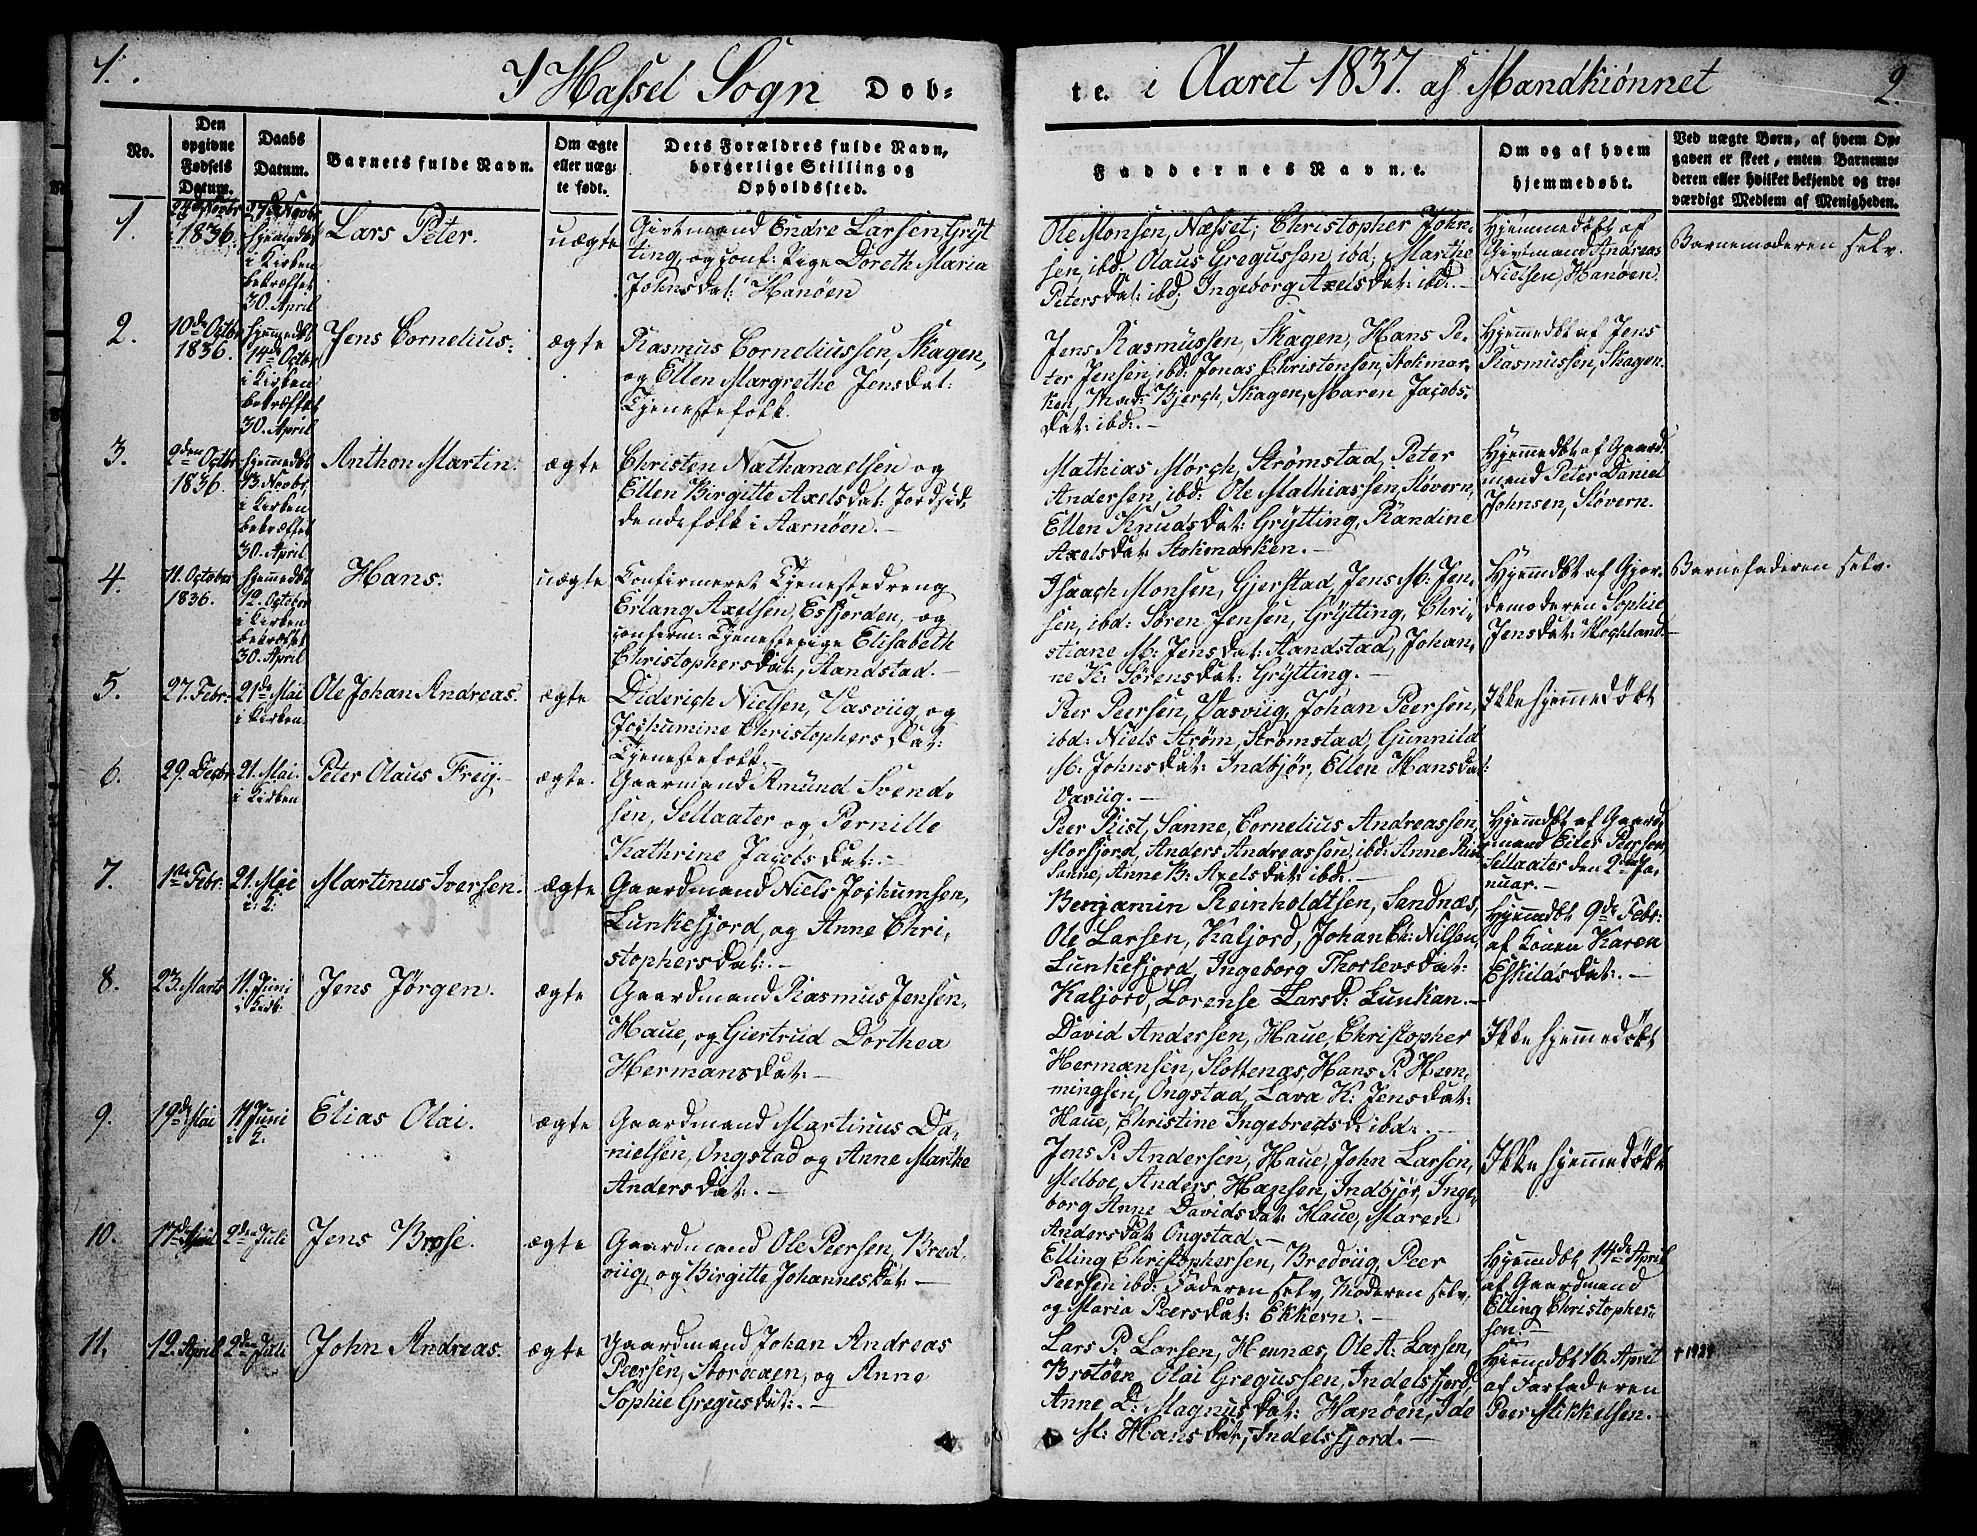 1.
I Hassel Sogn Dob=
te. i Aaret 1837. af Mandkiønnet
2.
No.
Den opgivne Fødsels Datum.
Daabs Datum.
Barnets fulde Navn.
Om ægte eller uæg- te født.
Dets Forældres fulde Navn, borgerlige Stilling og Opholdssted.
Faddernes Navn, ꝛc.
Om og af hvem hjemmedøbt.
Ved uægte Børn, af hvem Op- gaven er skeet, enten Barnemo- deren eller hvilket bekjendt og tro- værdigt Medlem af Menigheden.
1.
24de Novbr
1836.
27de Novbr
hjemmedøbt
i Kirken
bekræftet
30. April
Lars Peter.
uægte
Givtmand Endre Larsen, Gryt
ting, og conf: Pige Doreth Maria
Johnsdat: Hanøen
Ole Monsen, Næsset; Christopher John-
sen, ibd: Olaus Gregussen, ibd; Marthe
Petersdat: ibd; Ingeborg Axelsdat: ibd. -
Hjemmedøbt af
Givtmand Andreas
Nielsen, Hanøen.
Barnemoderen selv.
2.
10de Octbr
1836.
hjemmedøbt
14de Octbr
i Kirken
bekræftet
30. April
Jens Cornelius.
ægte
Rasmus Corneliussen, Skagen,
og Ellen Margrethe Jensdat:
Tjenestefolk.
Jens Rasmussen, Skagen, Hans Pe-
ter Jensen, ibd: Jonas Christensen, Stokmar-
ken, Mad: Bjerch, Skagen, Maren Jacobs-
dat: ibd: -
Hjemmedøbt af Jens
Rasmussen, Skagen.
3.
2den Octbr
1836.
hjemmedøbt
13 Novbr
i Kirken
bekræftet
30. April
Anthon Martin.
ægte
Christen Nathanaelsen og
Ellen Birgitte Axelsdat: Jordsid-
dendefolk i Aarnøen. -
Mathias Mörch, Strømstad, Peter
Andersen, ibd: Ole Mathiassen, Støvern,
Ellen Knudsdat: Grytting, Randine
Axelsdat: Stokmarken. -
Hjemmedøbt af Gaard-
mand Peter Daniel
Johnsen, Støvern.
4.
11. October
1836.
hjemmedøbt
12. October
i Kirken
bekræftet
30. April
Hans.
uægte
Confirmeret Tjenestedreng
Erlang Axelsen, Esfjorden, og
confirm: Tjenestepige Elisabeth
Christophersdat:, Aandstad. -
Isaach Monsen, Gjerstad, Jens M: Jen-
sen, ibd: Sören Jensen, Grytting, Chri-
stiane M: Jensdat: Aandstad, Johan-
ne K: Sörensdat: Grytting. -
Hjemdøbt af Gjor-
demoderen Sophie
Jensdat: Vochland.
Barnefaderen selv.
5.
27. Febr.
21de Mai
i Kirken
Ole Johan Andreas.
ægte
Diderich Nielsen, Vasviig og
Jochumine Christophersdat:
Tjenestefolk. -
Peer Peersen, Vasviig, Johan Peersen,
ibd: Niels Strøm, Strømstad, Gunnild
M: Johnsdat: Indbjør, Ellen Hansdat:
Vaviig. -
Ikke hjemmedøbt
6.
29. Decbr
21. Mai.
i Kirken
Peter Olaus Frey.
ægte.
Gaarmand Amund Svend-
sen, Sellaater og Pernille
Kathrine Jacobsdat: -
Peer Rist, Sanne, Cornelius Andreassen,
Morfjord, Anders Andreassen, ibd: Anne Rist
Sanne, Anne B: Axelsdat: ibd. -
Hjemdøbt af Gaard-
mand Eiler Peersen
Sellaater den 2den Ja-
nuar. -
7.
1ste Febr.
21. Mai
i: 2:
Martinus Iversen.
ægte
Gaardmand Niels Jochumsen,
Lunkefjord, og Anne Chri-
stophersdat: -
Benjamin Reinholdtsen, Sandnæs,
Ole Larsen, Kaljord, Johan Ch: Nilsen,
Lunkefjord, Ingeborg Thorlevsdat:
Kaljord, Lorense Larsd: Lunkan. -
Hjemdøbt 9de Febr:
af Konen Karen
Eskildsdat: -
8.
23. Marts
11. Juni
i Kirk:
Jens Jörgen.
ægte
Gaardmand Rasmus Jensen,
Haue, og Giertrud Dorthea
Hermansdat: -
David Andersen, Haue, Christopher
Hermansen, Slottenæs, Hans P. Hem-
mingsen, Ongstad, Lava K: Jensdat:
Haue, Christine Ingebretsd: ibd: -
Ikke hjemmedøbt
9.
19de Mai
11 Juni
i 2:
Elias Olai.
ægte
Gaardmand Martinus Da-
nielsen, Ongstad og Anne Marthe
Andersdat: -
Jens P. Andersen, Haue, John Larsen,
Melboe, Anders Hansen, Indbjør, Inge-
borg Anne Davidsdat: Haue, Maren
Andersdat: Ongstad. -
Ikke hjemmedøbt
10.
11de April
2den Juli
Jens Brose.
ægte
Gaardmand Ole Peersen, Bred-
viig, og Birgitte Johannesdat: -
Elling Christophersen, Bredviig, Peer
Peersen ibd: Faderen selv, Moderen selv,
og Maria Peersdat: Ekkern. -
Hjemdøbt 14de April
af Gaardmand
Elling Christopher-
sen. -
11.
12. April
2den Juli
John Andreas.
ægte
Gaardmand Johan Andreas
Peersen, Storaaen, og Anne
Sophie Gregusdat: -
Lars P. Larsen, Hennæs, Ole A: Larsen,
Brotøen, Olai Gregussen, Indelsfjord,
Anne D: Magnusdat: Hanøen, Ide
M: Hansdat:, Indelsfjord. -
Hjemdøbt 16. April
af Farfaderen
Peer Mikkelsen. -